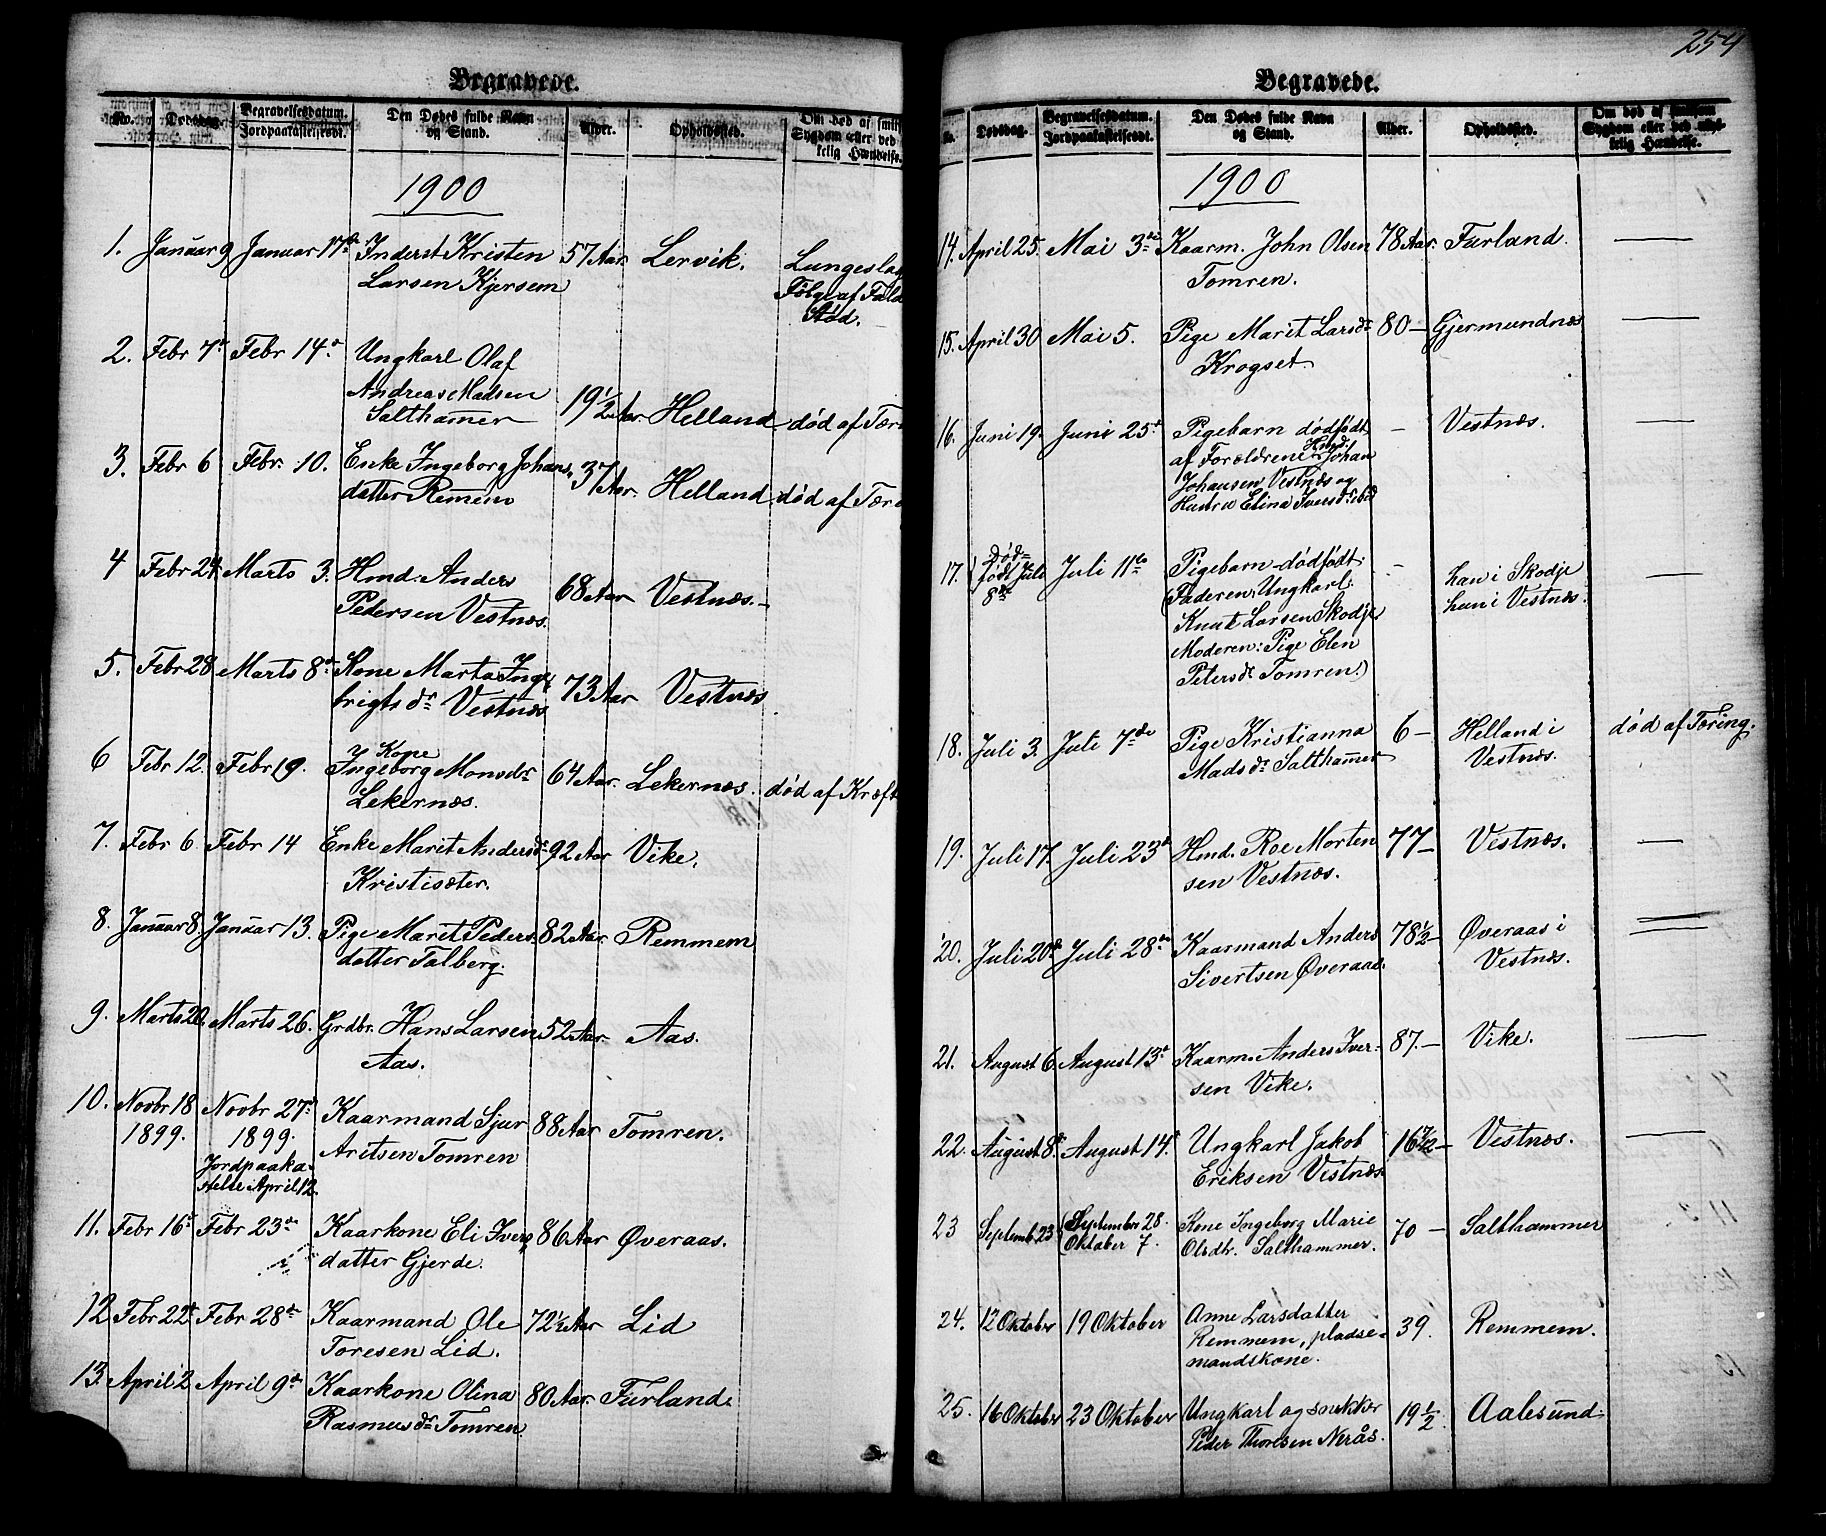 254
Begravede.
No.
Dødsdag.
Begravelsesdatum.
Jordpaakastelsesdt.
Den Dødes fulde Navn
og Stand.
Alder.
Opholdssted.
Om død af smits
Sygdom eller ved
kelig Hændelse.
1900
1. Januar 9 Januar 17de Inderst Kristen 57 Aar. Lervik. Lungesla
Larsen Kjersem Følge af Fald
Stød.
2. Febr 7de Febr 14de Ungkarl Olaf
Andreas Madsen 19 1/2 Aar. Helland død af Tær
Salthamer
3. Febr 6 Febr. 10. Enke Ingeborg Johans 37 Aar. Helland død af Tær
datter Remem
4 Febr 24 Marts 3. Hmd. Anders 68 Aar Vestnæs.
Pedersen Vestnæs.
5. Febr 28 Marts 8de Kone Marta Inge 73 Aar Vestnæs
brigts dr Vestnæs
6 Febr 12. Febr 19. Kone
Ingeborg Monsdr 64 Aar. Lekernæs. død af Kræft
Lekernæs.
7. Febr 6. Febr 14 Enke Marit Andersdr 92 Aar Vike.
Kristisæter.
8. Januar 8. Januar 13. Pige Marit Peders 82 Aar. Remmem
datter Talberg.
9. Marts 20. Marts 26. Grdbr. Hans Larsen 52 Aar. Aas.
Aas.
10. Novbr 18 Novbr 27de Kaarmand Sjur 88 Aar Tomren.
1899. 1899. Aritsen Tomren
Jordpaaka-
stelse April 12.
11. Febr 16de Febr 23de Kaarkone Eli Ivers 86 Aar Øveraas.
datter Gjerde.
12 Febr 22de Febr 28de Kaarmand Ole 72 1/2 Aar Lid
Toresen Lid.
13. April 2 April 9de Kaarkone Olina 80 Aar. Furland.
Rasmusdr Tomren.
Begravede.
No.
Dødsdag.
Begravelsesdatum.
Jordpaakastelsesdt.
Den Dødes fulde Navn
og Stand.
Alder.
Opholdssted.
Om død af smitsom
Sygdom eller ved ulyk-
kelig Hændelse.
1900
14. April 25. Mai 3die Kaarm. John Olsen 78 Aar. Furland. —
Tomren.
15. April 30 Mai 5. Pige Marit Larsdr 80 — Gjermundnæs —
Krogset.
16. Juni 19. Juni 25de Pigebarn dødfødt, — Vestnæs. —
af Forældrene Hmd. Johan
Johansen Vestnæs og
Hustru Elina Iversdr ibd
17. død-
født Juli Juli 11te Pigebarn dødfødt. — han i Skodje —
8de (Faderen, Ungkarl: hun i Vestnæs.
Knut Larsen Skodje,
Moderen: Pige Elen
Petersdr Tomren.)
18. Juli 3. Juli 7de Pige Kristianna 6 — Helland i død af Tæring.
Madsdr Salthamer Vestnæs.
19. Juli 17. Juli 23de Hmd. Roe Morten 77 — Vestnæs. —
sen Vestnæs.
20. Juli 20de Juli 28de Kaarmand Anders 78 1/2 — Øveraas i —
Sivertsen Øveraas. Vestnæs.
21. August 6. August 13de Kaarm. Anders Iver- 87. — Vike. —
sen Vike.
22. August 8de August 14de Ungkarl Jakob 16 7/12 — Vestnæs. —
Eriksen Vestnæs
23 Septemb. 23 September 28. Kone Ingeborg Marie 70 — Salthammer
Oktober 7. Olsdtr. Salthammer.
24. 12 Oktober 19 Oktober Anne Larsdatter 39. Remmem.
Remmem, pladse-
mandskone.
25. 16 Oktober 23 Oktober Ungkarl og snekker 19 1/2. Aalesund.
Peder Thoresen Nerås.